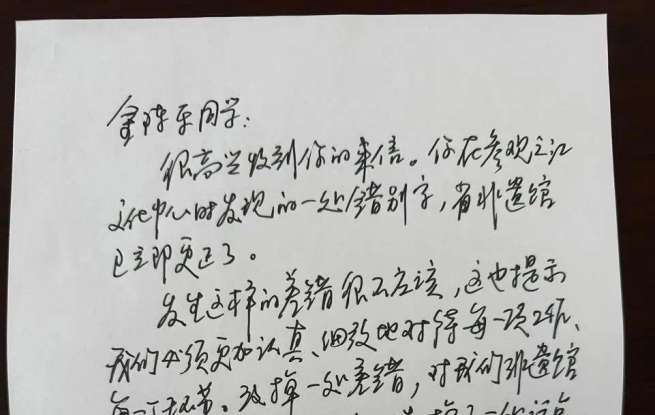 金陈乐同学:
很高兴收到你的来信。你在参观之江
文化中心时发现的一处错别字,省非遗馆
已立即更正了。
发生这样的差错很不应该,这也提示
我们必须更加认真、细致地对待每一项工作、
每一个环节。改掉一处差错,对我们非遗馆